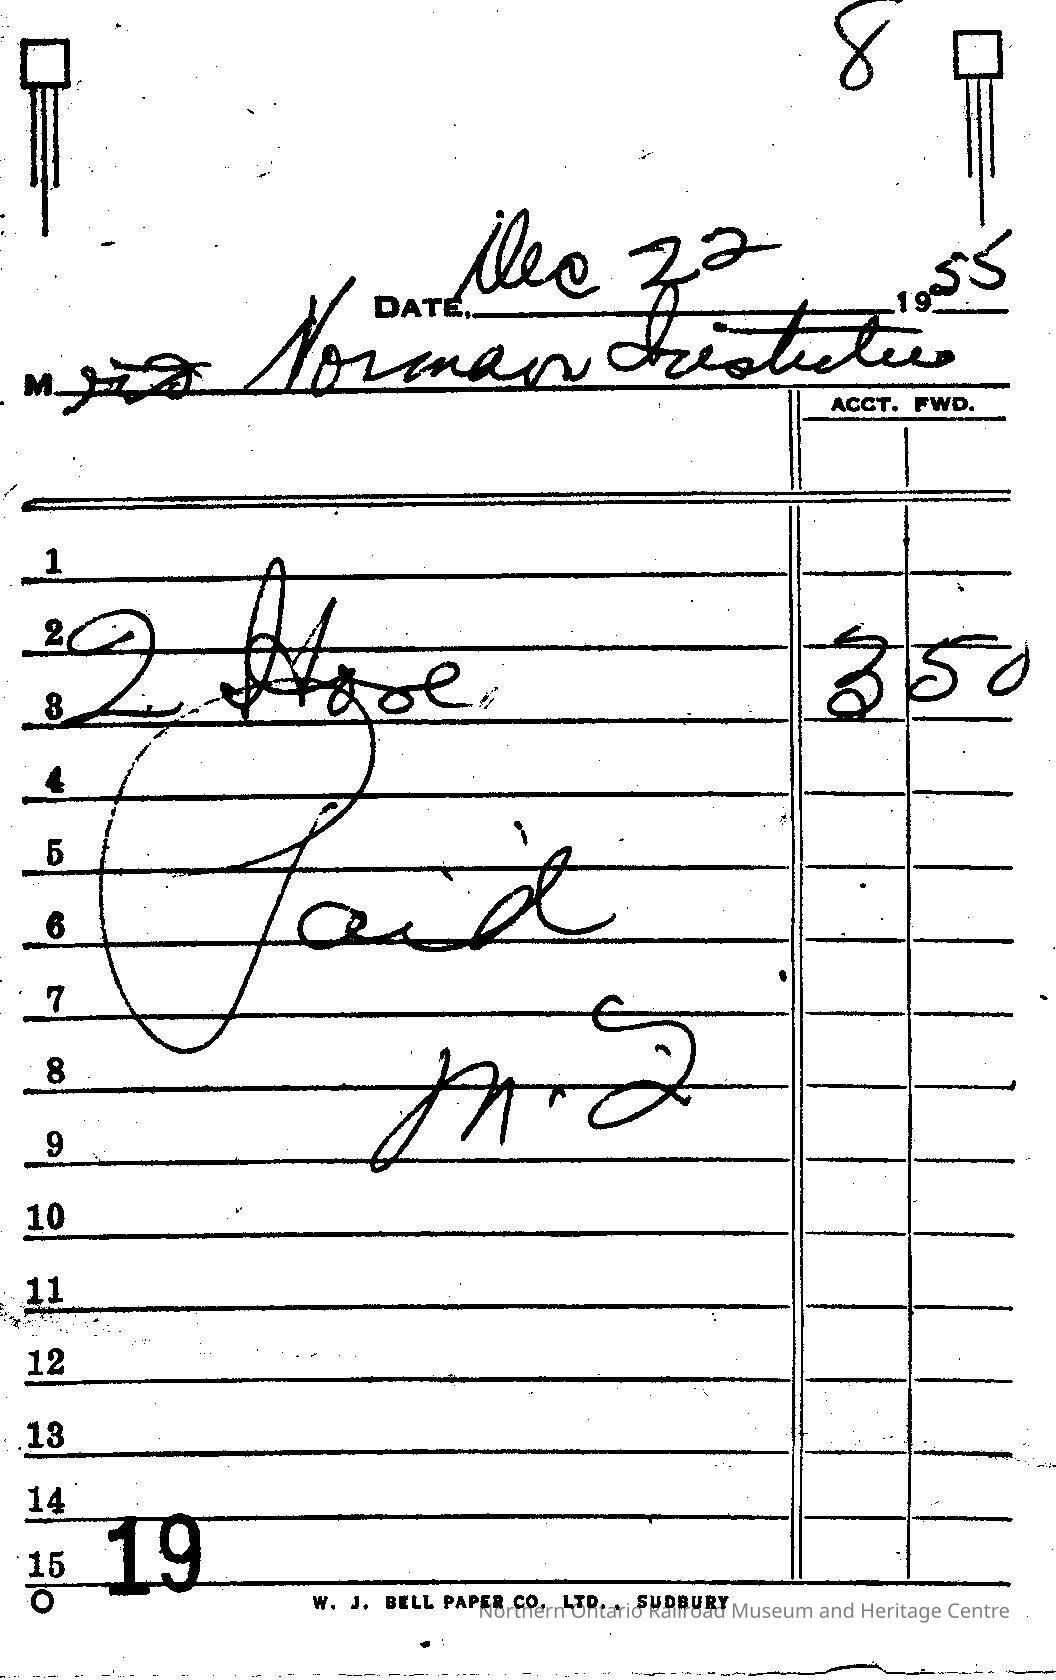 8
DATE. Dec 22 1955
M rs Norman Institute
ACCT. FWD.
1
2
2 Hose 3 50
3
4
5
Paid
6
7
8
M. S
9
10
11
12
13
14
19
15
W. J. BELL PAPER CO. LTD., SUDBURY
Northern Ontario Railroad Museum and Heritage Centre